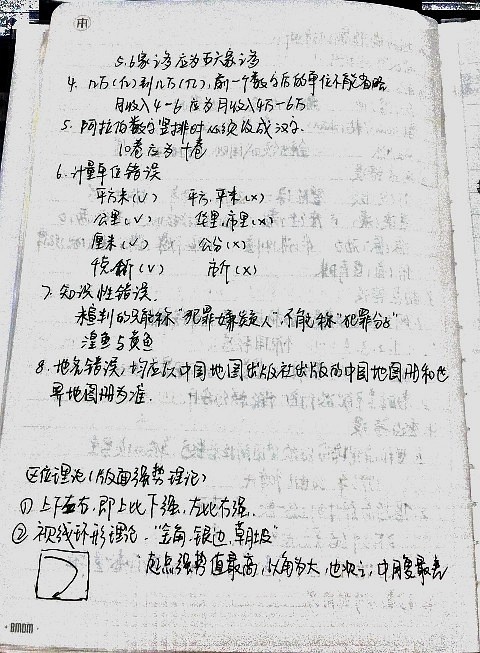 雨
5.6家诊应为五六家诊
4. 几万(亿)到几万(亿),前一个数字后的单位不能省略
月收入4－6应为月收入4万－6万
5. 阿拉伯数字竖排时必须改成汉字.
10卷应为十卷
6. 计量单位错误
平方米(√) 平方,平米(×)
公里(√) 华里,市里(×)
厘米(√) 公分(×)
千克,斤(√) 市斤(×)
7. 知识性错误.
未审判的只能称"犯罪嫌疑人",不能称"犯罪分子"
湟鱼与黄鱼
8. 地名错误,均应以中国地图出版社出版的中国地图册和世
界地图册为准.
区位理论(版面强势理论)
① 上下左右,即上比下强,左比右强.
② 视线环形理论."金角,银边,草肚皮"
起点强势值最高,以角为大,边次之,中腹最差
BMDM